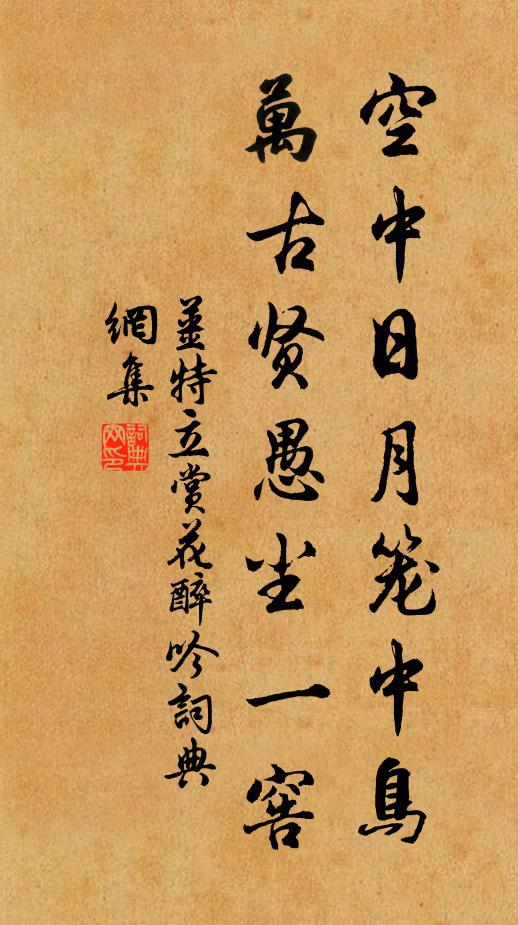 空中日月笼中鳥
萬古贤愚尘一窖
薑特立赏花醉吟詞典
網集
詞典
网印